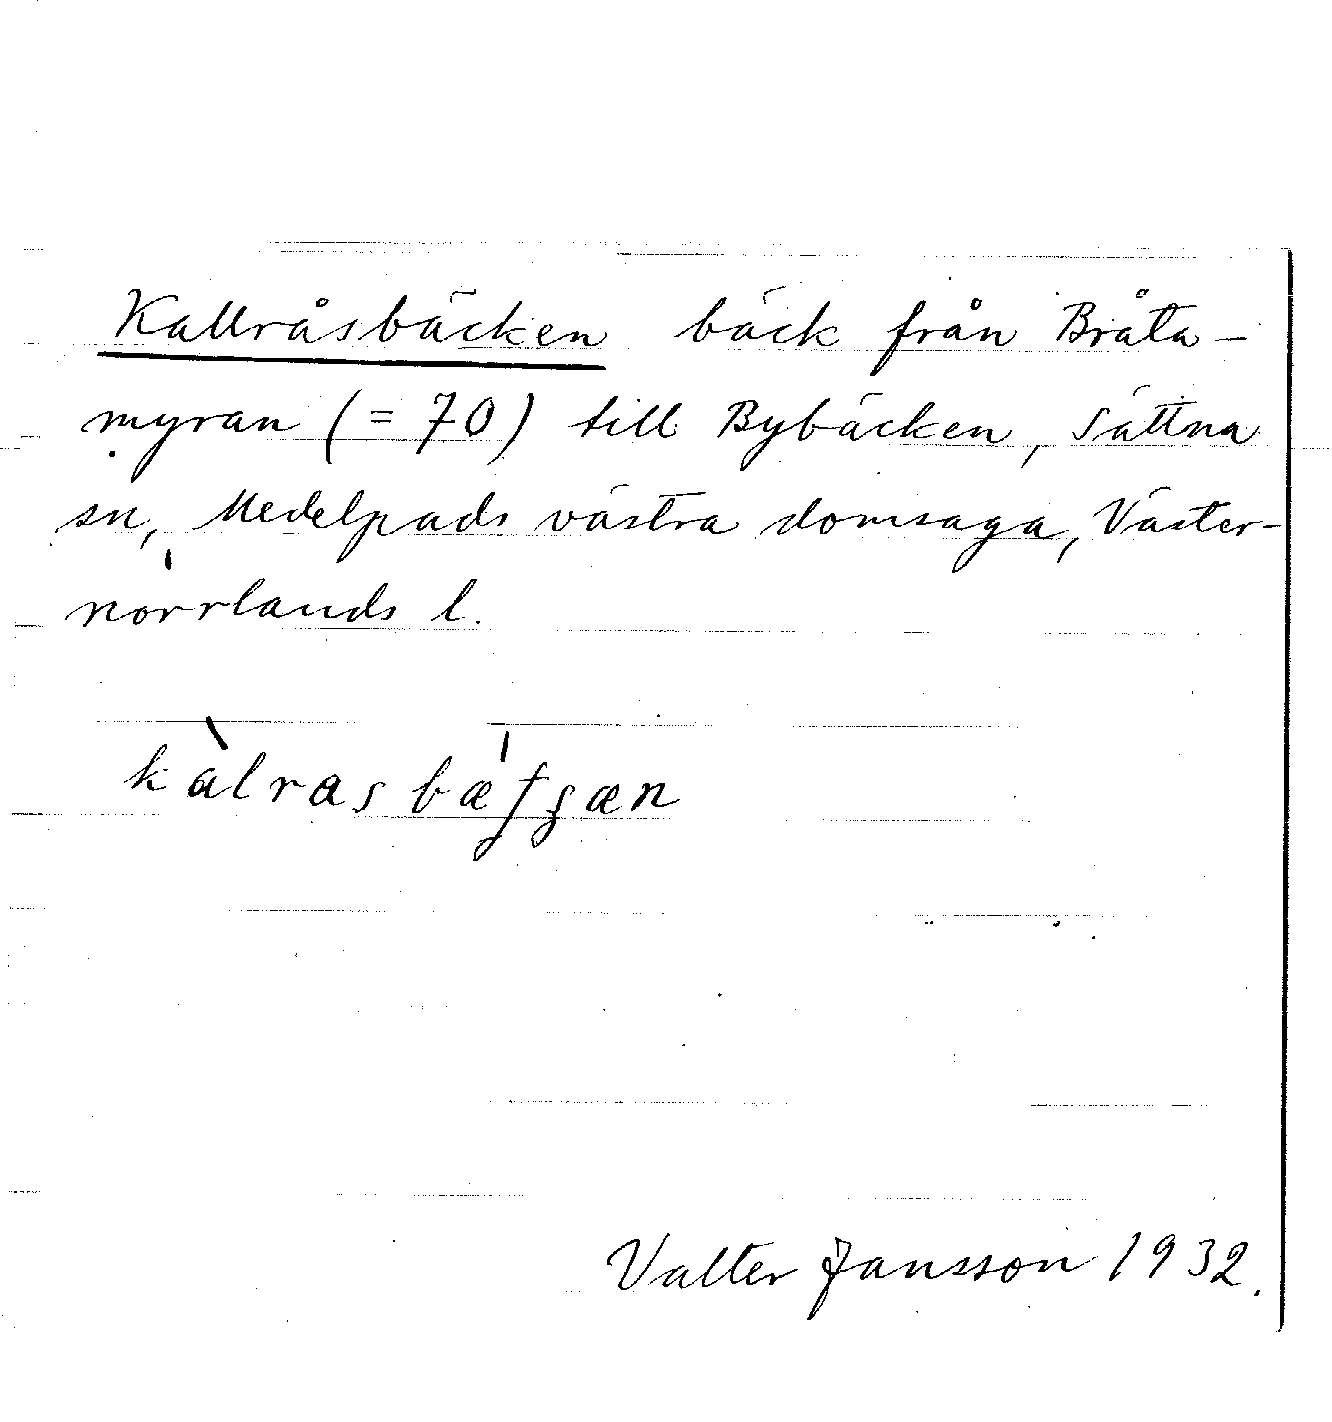 Kallråsbäcken bäck från Bråta-
myran (= 70) till Bybäcken, Sättna
sn, Medelpads västra domsaga, Väster-
norrlands l.
kàlrasbǽʃʒæn
Valter Jansson 1932.